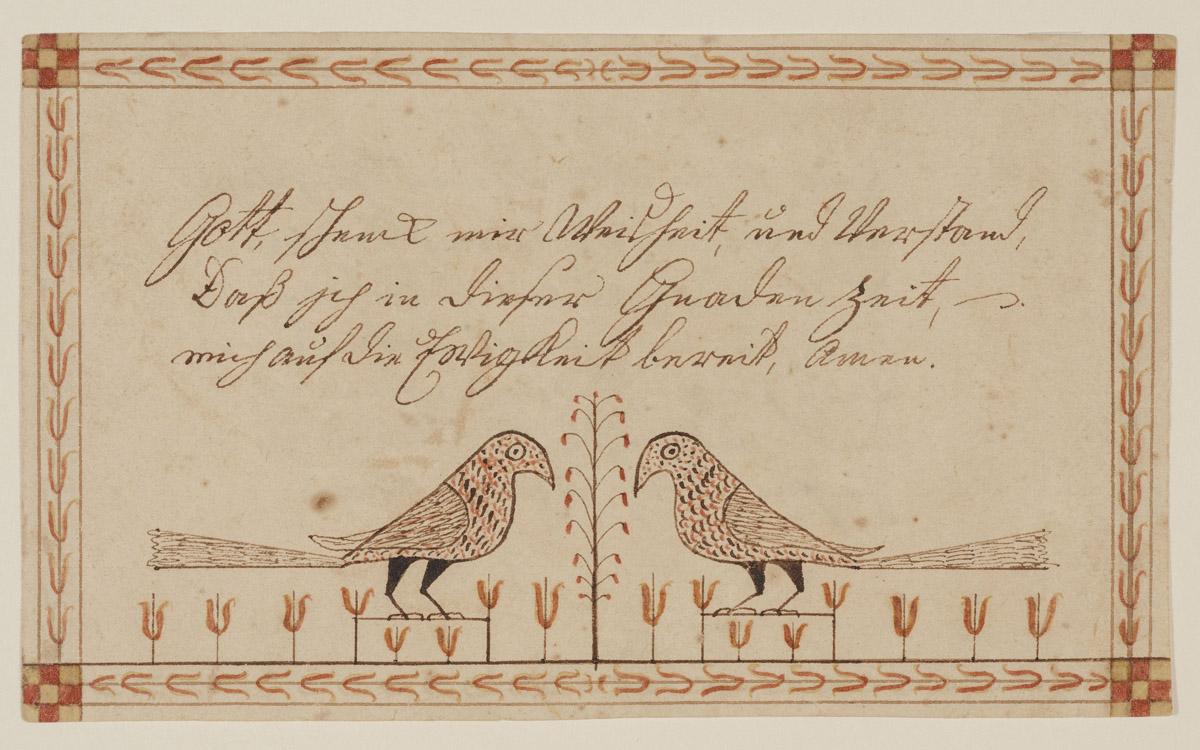 Gott, schenk mir Weisheit, und Verstand,
Daß ich in dieser Gnaden Zeit,
mich auf die Ewigkeit bereit, Amen.